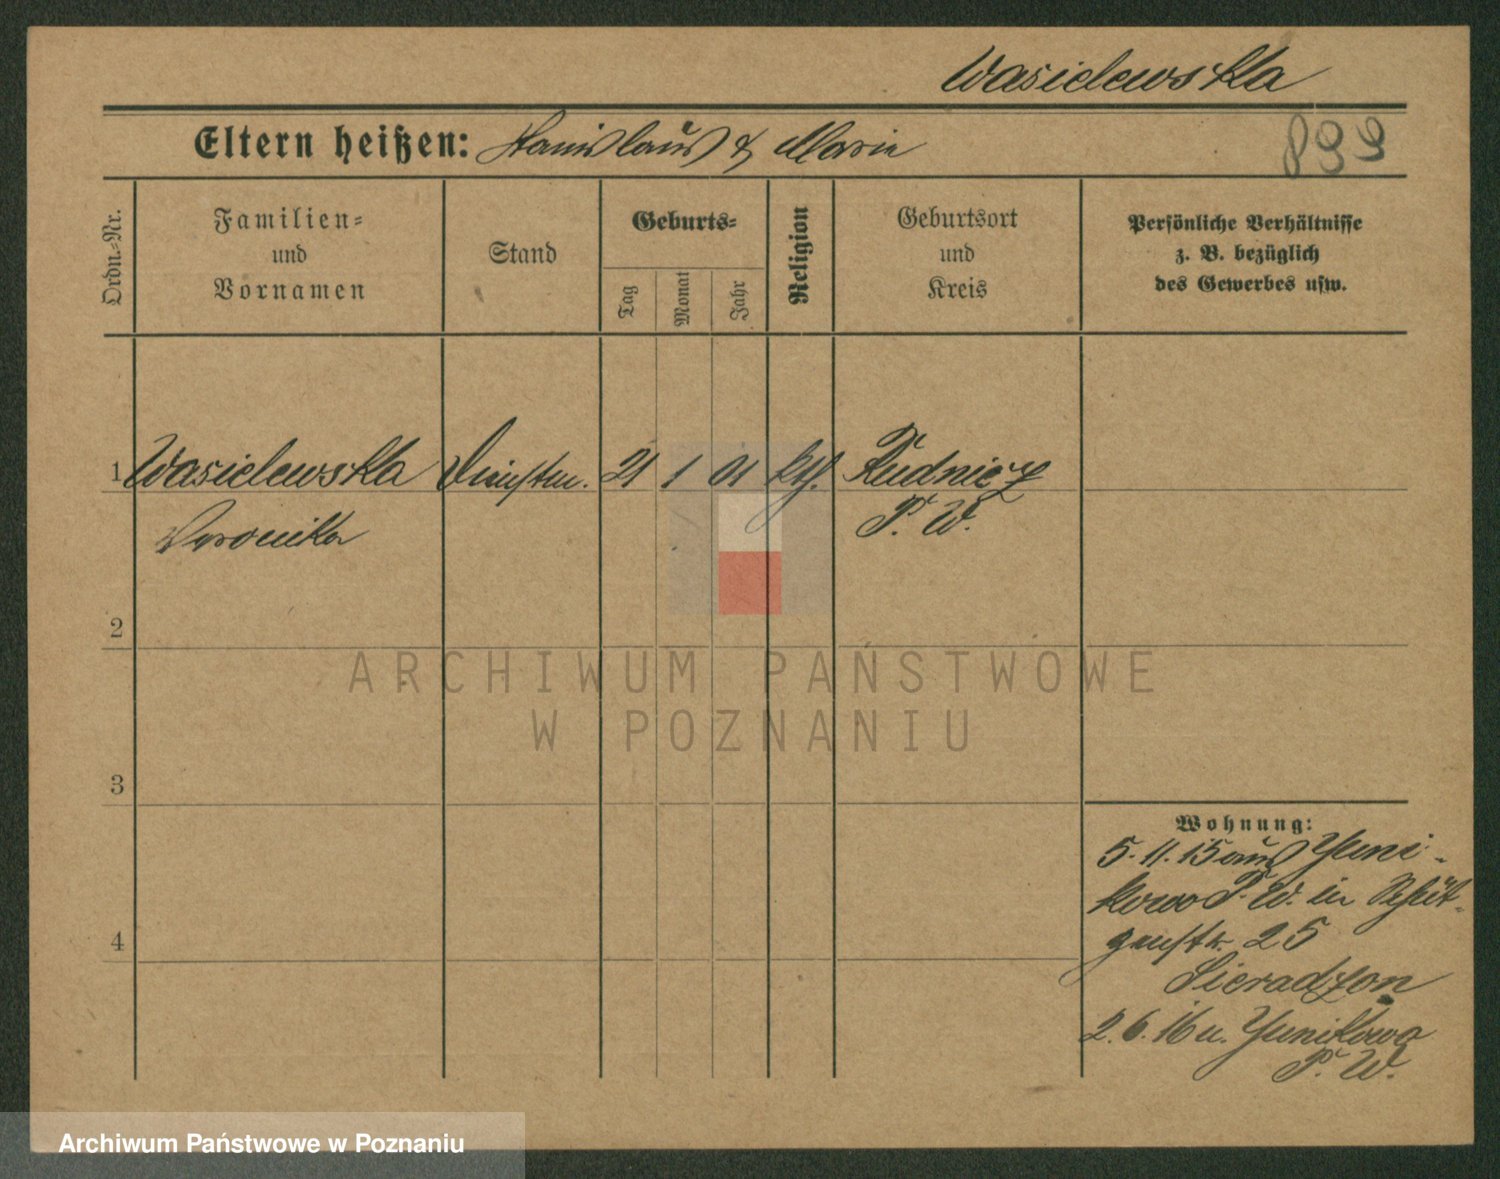 Wasielewska
Eltern heißen: Stanislaus & Marie
899
Ordn.-Nr.
Familien-
und
Vornamen
Stand
Geburts-
Tag
Monat
Jahr
Religion
Geburtsort
und
Kreis
Persönliche Verhältnisse
z. B. bezüglich
des Gewerbes usw.
1 Wasielewska Dienstm. 21 1 01 kth. Rudnicz
Veronika P. W.
2
ARCHIWUM PAŃSTWOWE
W POZNANIU
3
Wohnung:
5.11.15 aus Juni-
kowo P. W. in
25
Sieradzon
4
2.6.16 n. Junikowo
P. W.
Archiwum Państwowe w Poznaniu